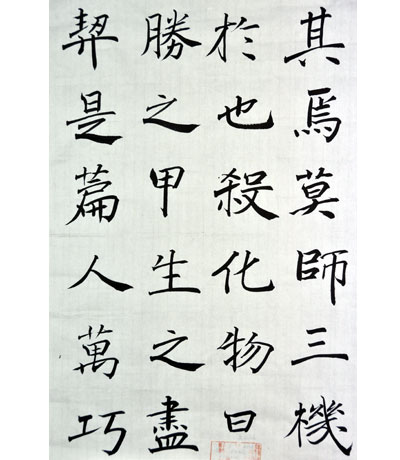 其焉莫師三機
於也殺化物曰
勝之甲生之盡
契是篇人萬巧